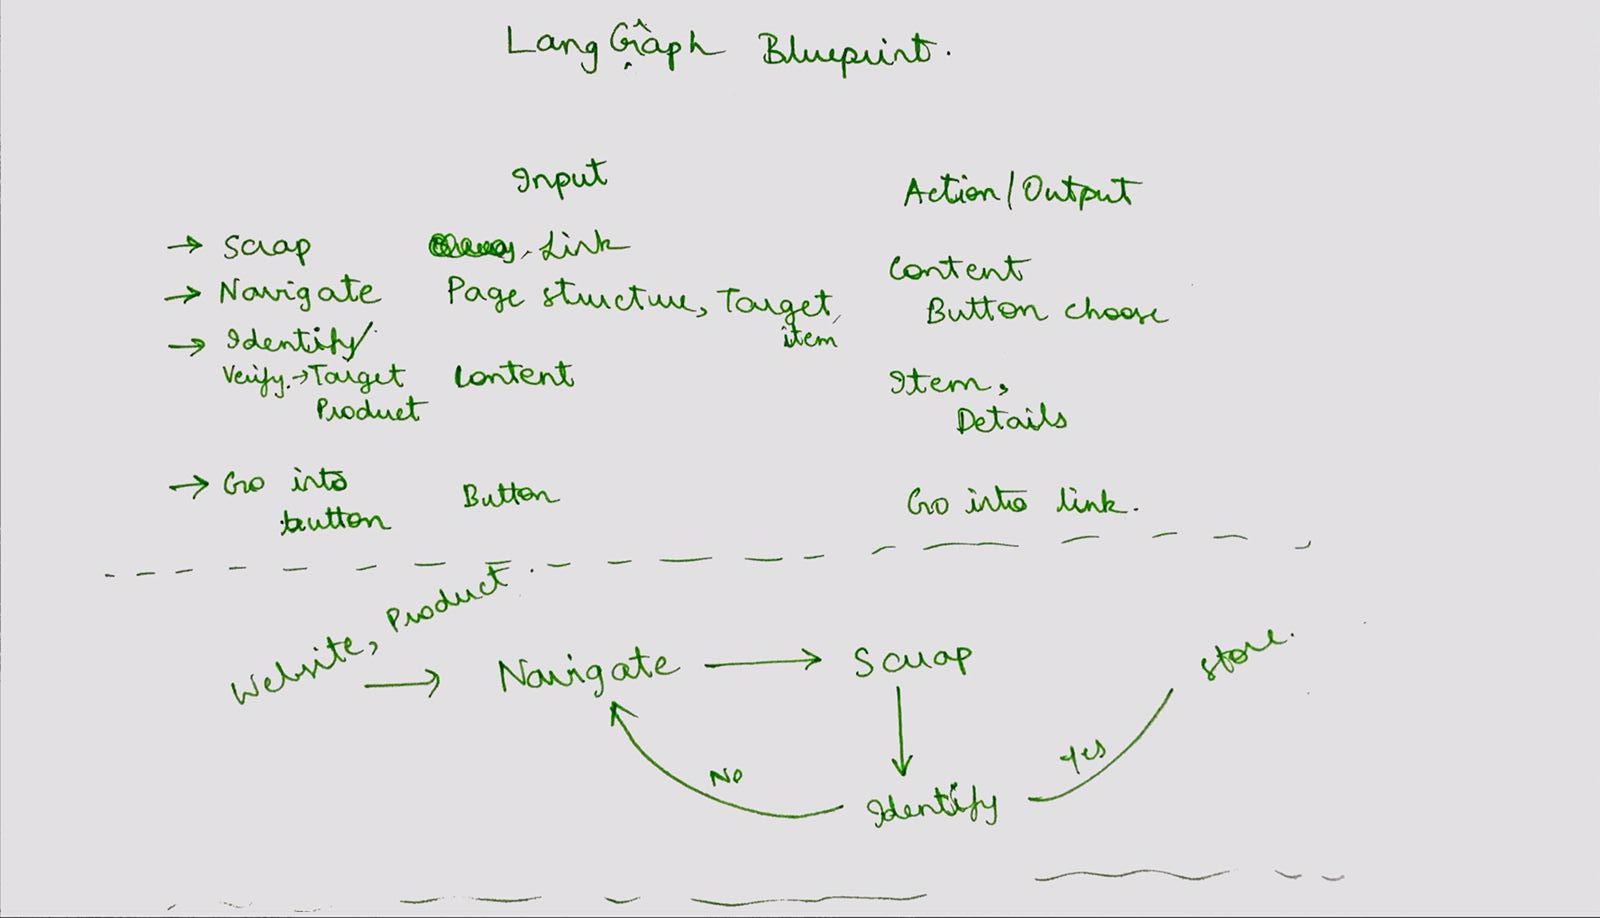 LangGraph Blueprint.
Input
Action/Output
→ Scrap Link Content
→ Navigate Page structure, Target item Button choose
→ Identify/
Verify → Target Product Content Item, Details
→ Go into button Button Go into link.
Website, Product
→ Navigate → Scrap
store.
No
Yes
Identify